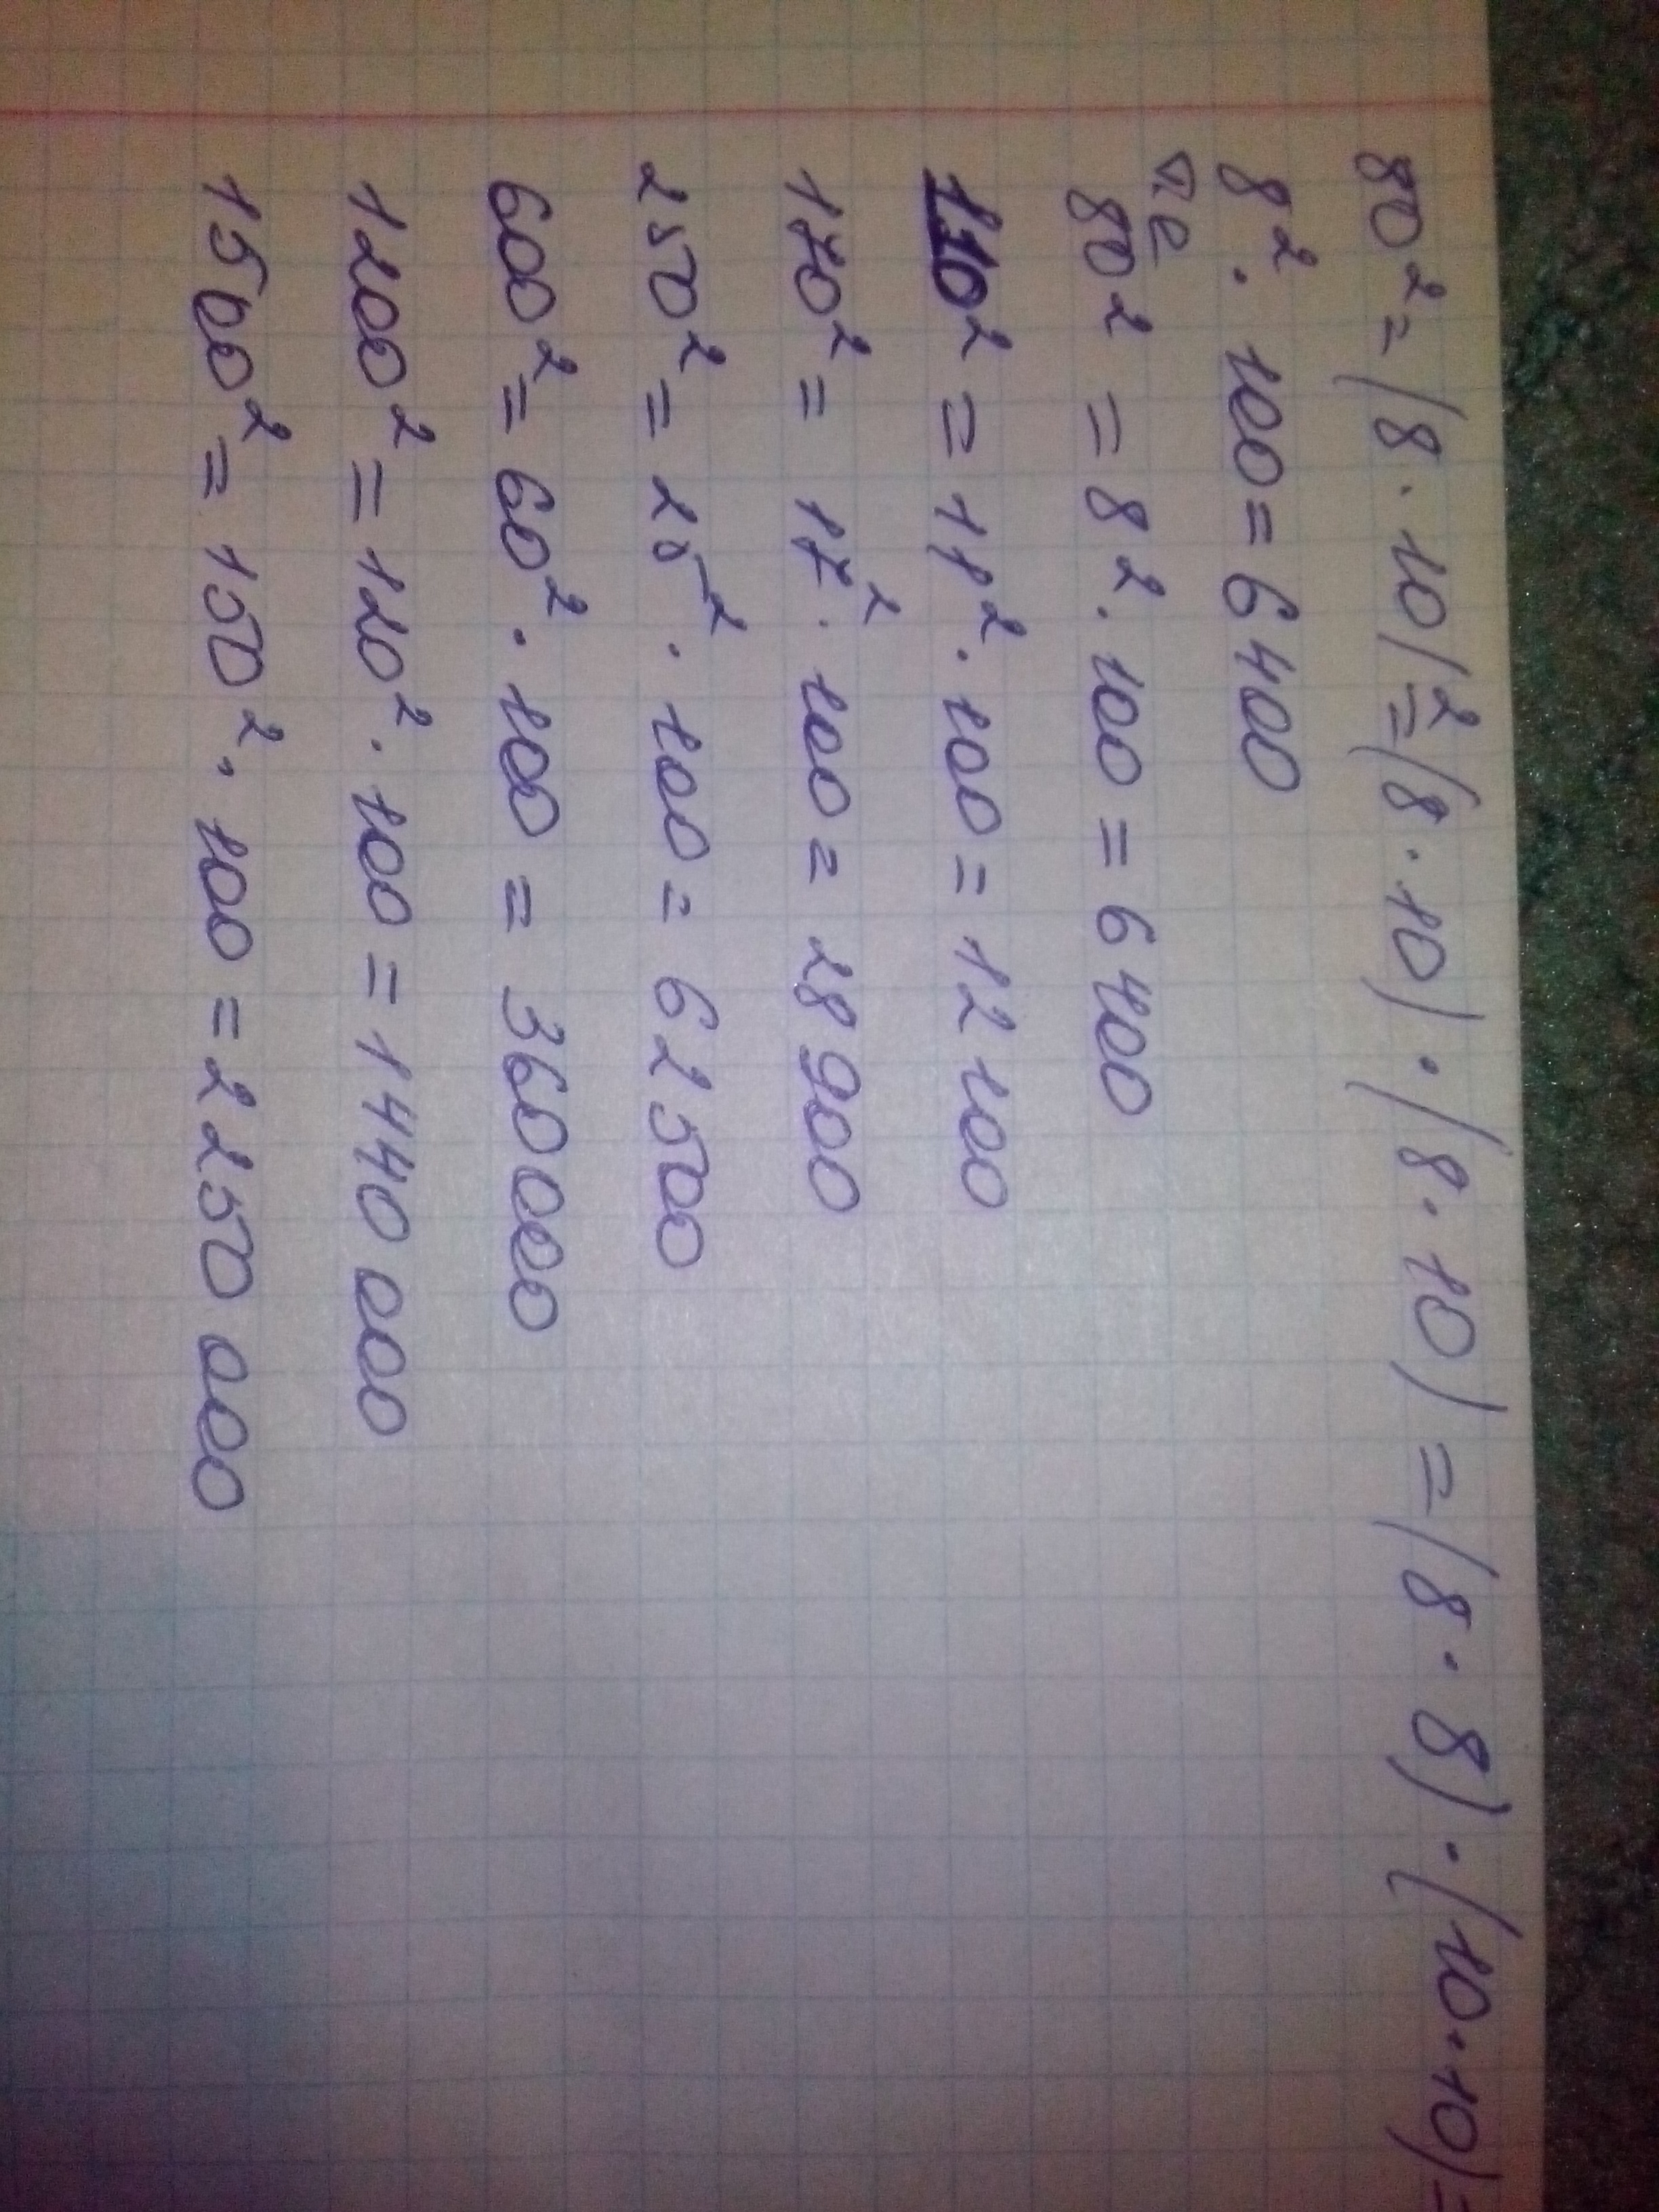 80² = (8 · 10)² = (8 · 10) · (8 · 10) = (8 · 8) · (10 · 10) =
8² · 100 = 6400
80² = 8² · 100 = 6400
110² = 11² · 100 = 12 100
170² = 17² · 100 = 28 900
250² = 25² · 100 = 62 500
600² = 60² · 100 = 360 000
1200² = 120² · 100 = 1 440 000
1500² = 150² · 100 = 2 250 000